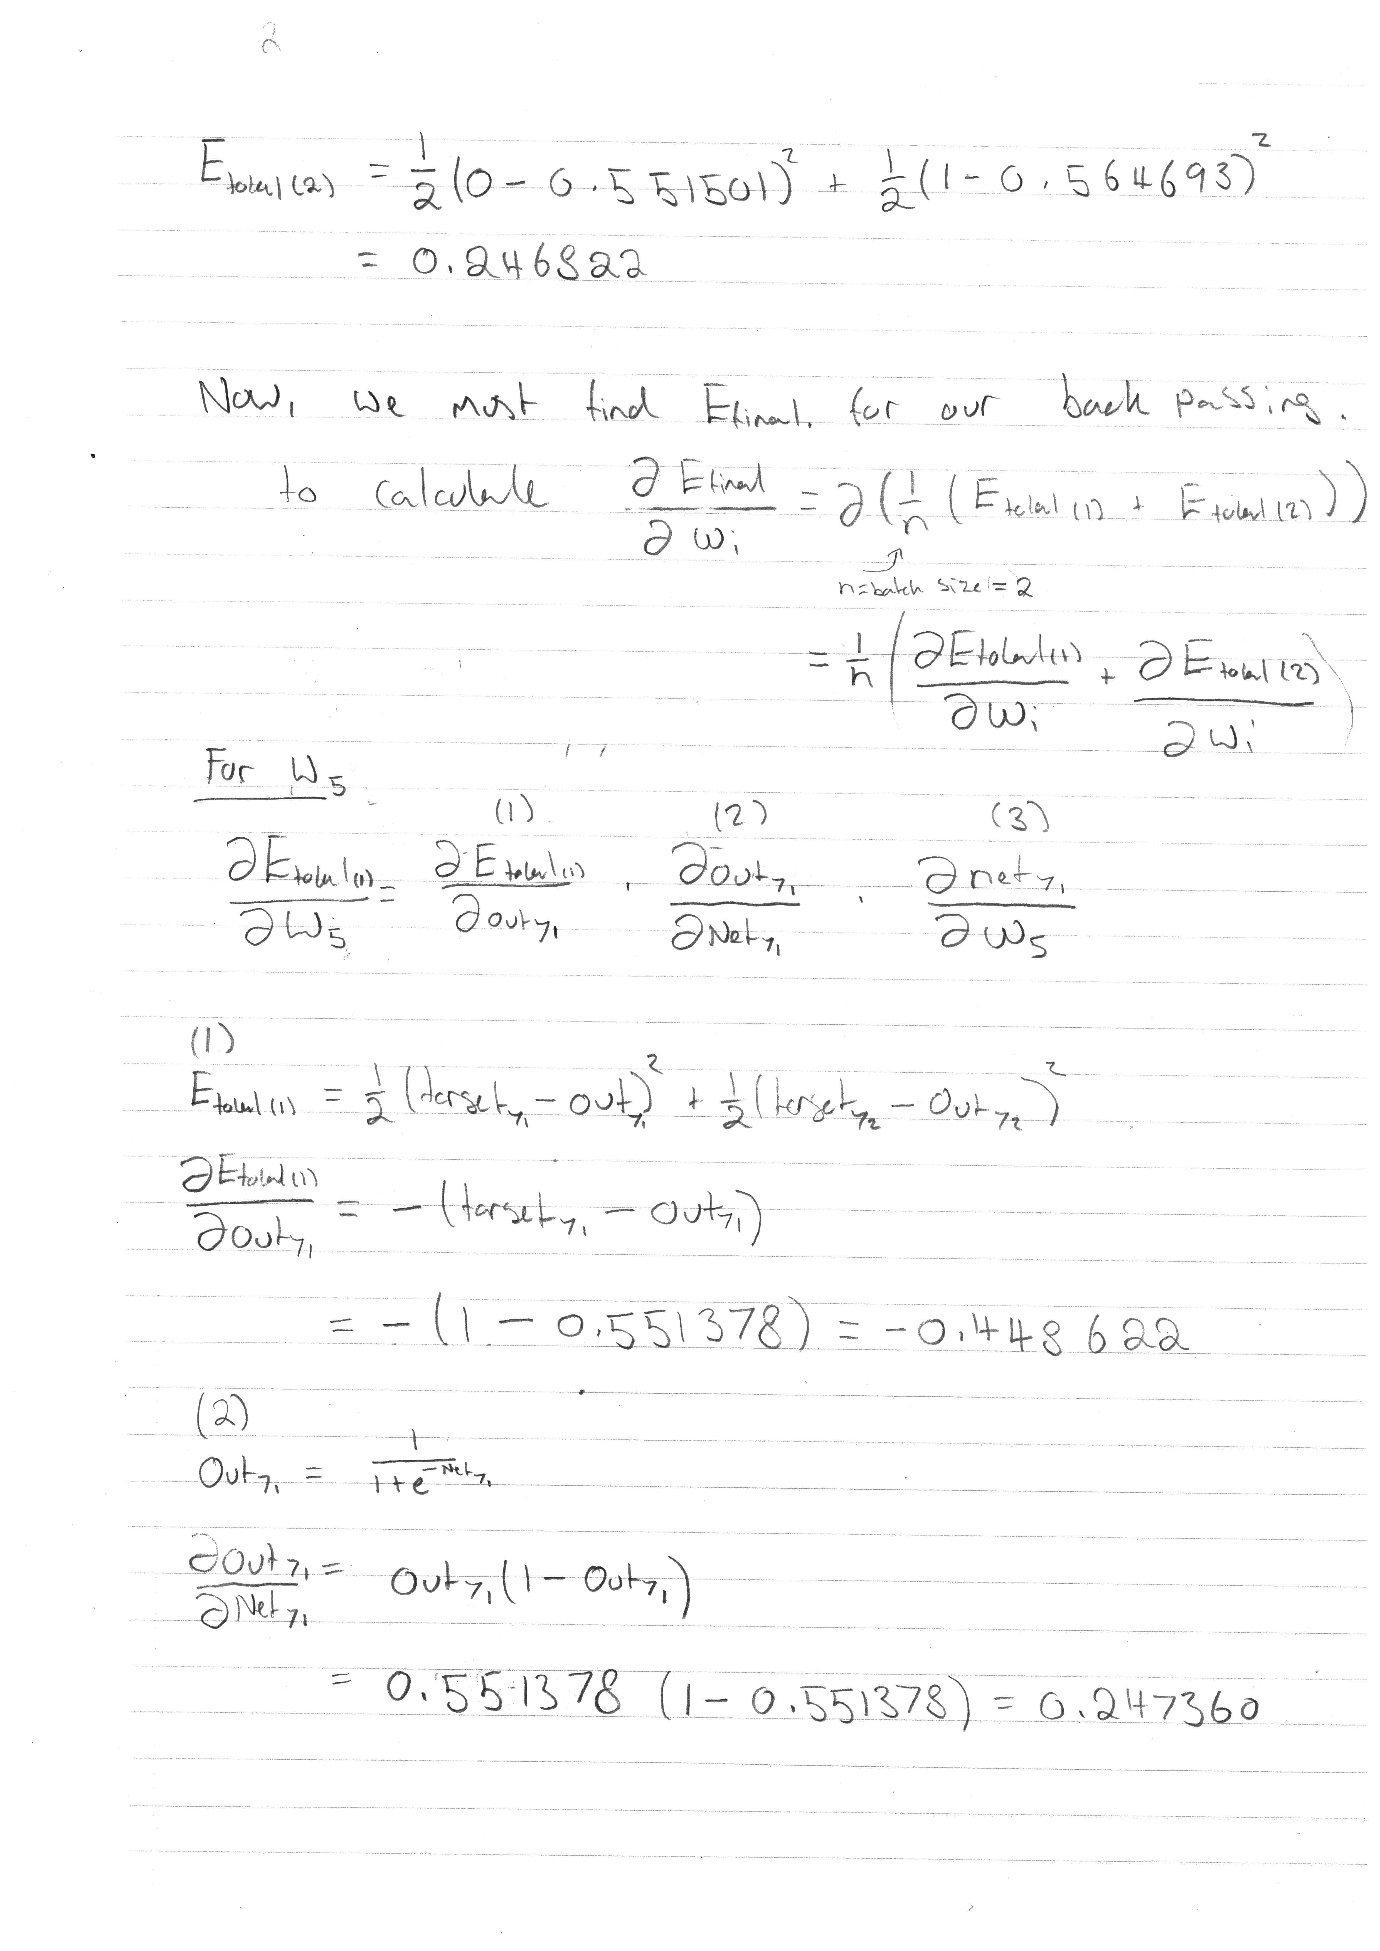 2
E_total(2) = 1/2 (0 - 0.551501)² + 1/2 (1 - 0.564693)²
= 0.246822
Now, we must find E_final. for our back passing.
to calculate ∂E_final/∂w_i = ∂(1/n (E_total(1) + E_total(2)))
n = batch size = 2
= 1/n (∂E_total(1)/∂w_i + ∂E_total(2)/∂w_i)
For W_5
(1) (2) (3)
∂E_total(1)/∂W_5 = ∂E_total(1)/∂out_y1 . ∂out_y1/∂Net_y1 . ∂net_y1/∂w_5
(1)
E_total(1) = 1/2 (target_y1 - out_y1)² + 1/2 (target_y2 - Out_y2)²
∂E_total(1)/∂out_y1 = -(target_y1 - out_y1)
= -(1 - 0.551378) = -0.448622
(2)
Out_y1 = 1/(1+e^(-Net_y1))
∂out_y1/∂Net_y1 = Out_y1 (1 - Out_y1)
= 0.551378 (1 - 0.551378) = 0.247360